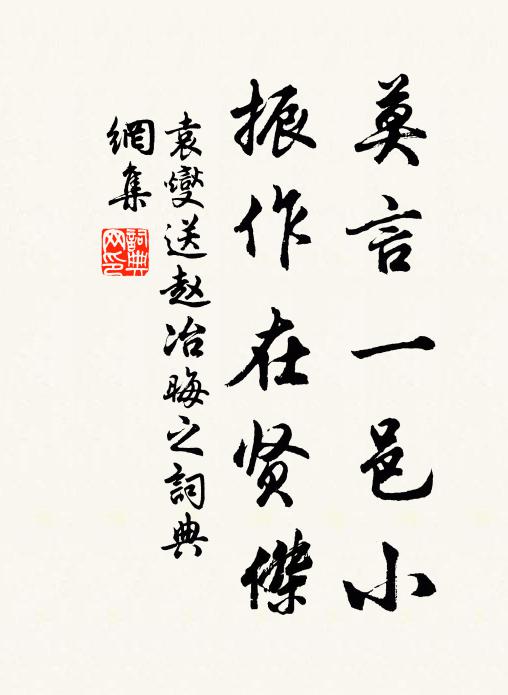 莫言一邑小
振作在贤傑
袁燮送赵冶晦之詞典
網集
詞典网印